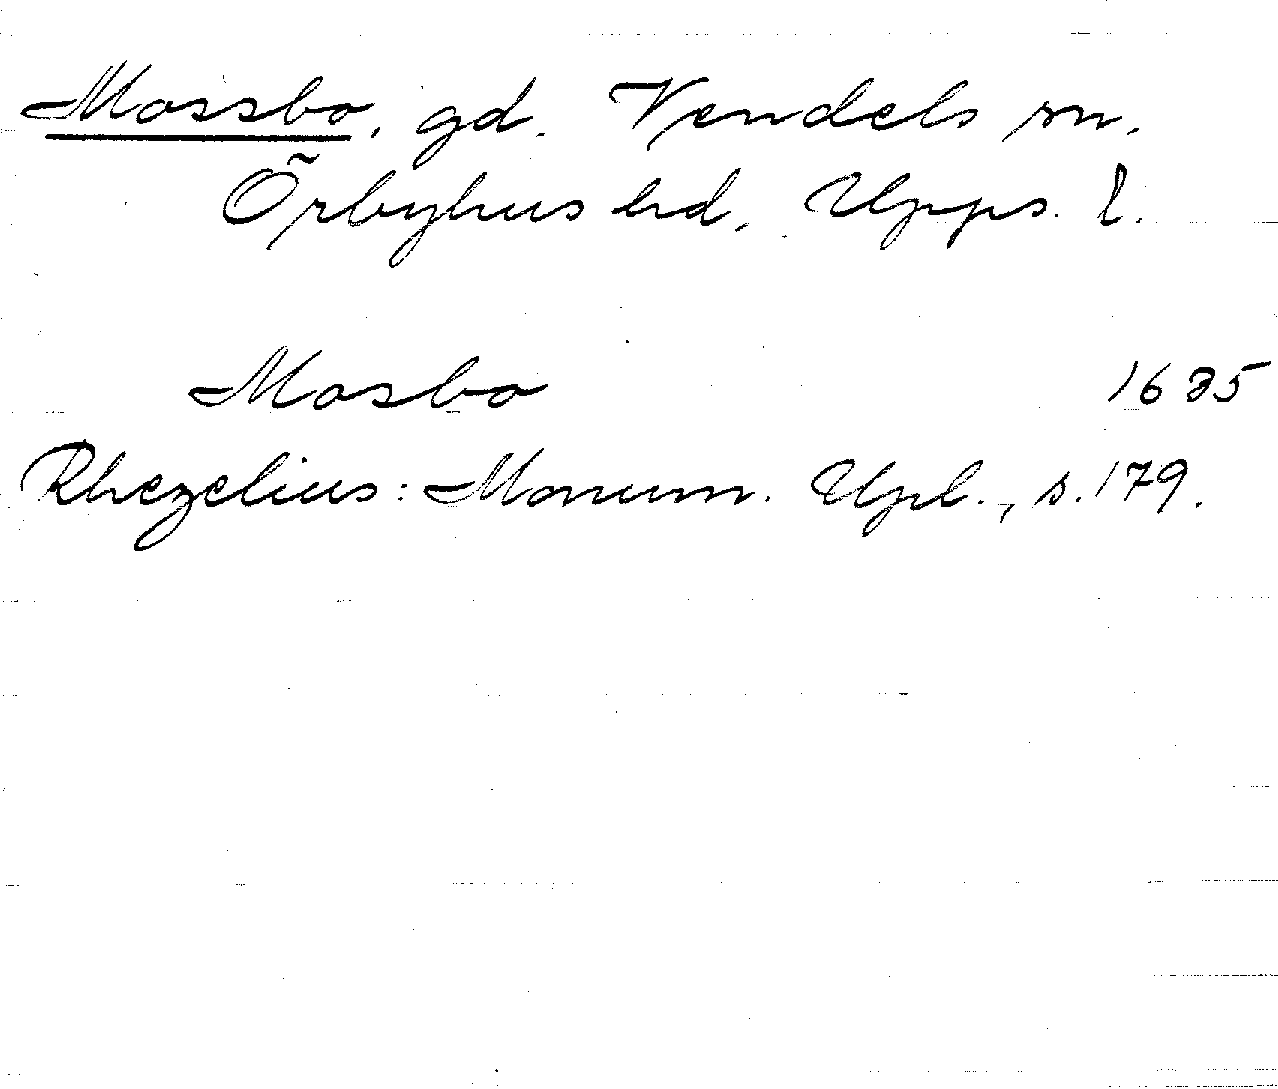 Mossbo, gd. Vendels sn.
Örbyhus hd, Upps. l.
Mosbo 1635
Rhezelius: Monum. Upl., s. 179.